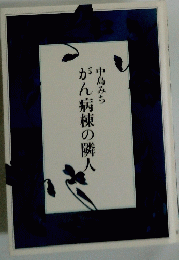 中島みち
がん病棟の隣人